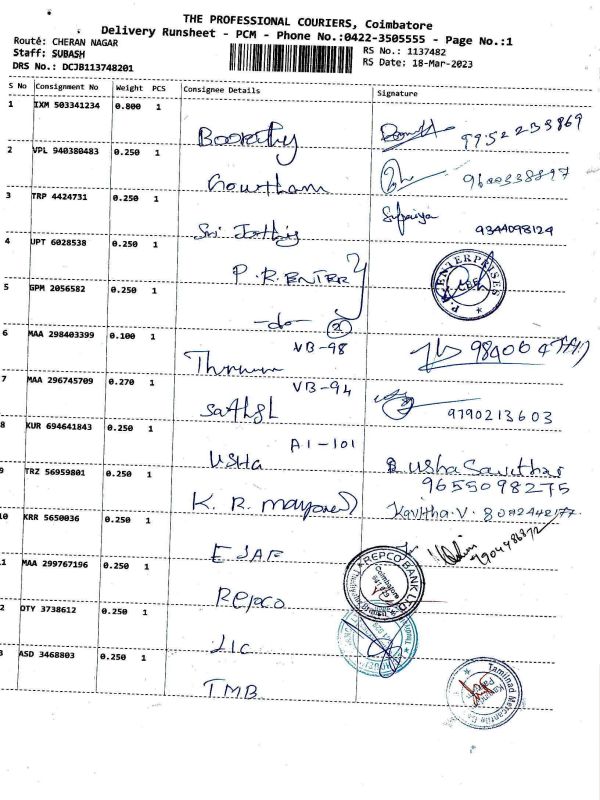 THE PROFESSIONAL COURIERS, Coimbatore
Delivery Runsheet - PCM - Phone No.:0422-3505555 - Page No.:1
Route: CHERAN NAGAR
RS No.: 1137482
Staff: SUBASH
RS Date: 18-Mar-2023
DRS No.: DCJB113748201
S No Consignment No Weight PCS Consignee Details Signature
1 IXM 503341234 0.800 1
9952233869
2 VPL 940380483 0.250 1
Gowtham 9600338897
3 TRP 4424731 0.250 1
Sri Jothis 9344098124
4 UPT 6028538 0.250 1
P.R. ENTER
P.R. ENTERPRISES
CBE
5 GPM 2056582 0.250 1
-do- 2
6 MAA 298403399 0.100 1 VB-98
7 MAA 296745709 0.270 1 VB-94
Sathish 9790213603
8 KUR 694641843 0.250 1 A1-101
Usha Usha
9655098275
9 TRZ 56959801 0.250 1
K. R. Kavitha.V.
10 KRR 5650036 0.250 1
ESAF
11 MAA 299767196 0.250 1
Repco
REPCO BANK LTD
Coimbatore
12 OTY 3738612 0.250 1
LIC
13 ASD 3468803 0.250 1
TMB
Tamilnad Mercantile